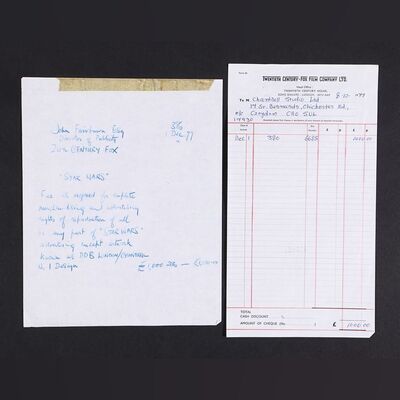 John Fairbairn Esq
Director of Publicity
20th CENTURY FOX
380
Dec 77
"STAR WARS"
Fee as agreed for complete
merchandising and advertising
rights of reproduction of all
in any part of "STAR WARS"
advertising except artwork
known as DDB LONDON/CHANTRELL
No 1 Design
£1,000
TWENTIETH CENTURY-FOX FILM COMPANY LTD.
Head Office
TWENTIETH CENTURY HOUSE,
SOHO SQUARE, LONDON,
To M Chantrell Studio Ltd
17 St. Bernards, Chichester Rd,
Croydon CR0 5UL
Dec 1 380 1000.00
TOTAL
CASH DISCOUNT
AMOUNT OF CHEQUE £ 1000.00